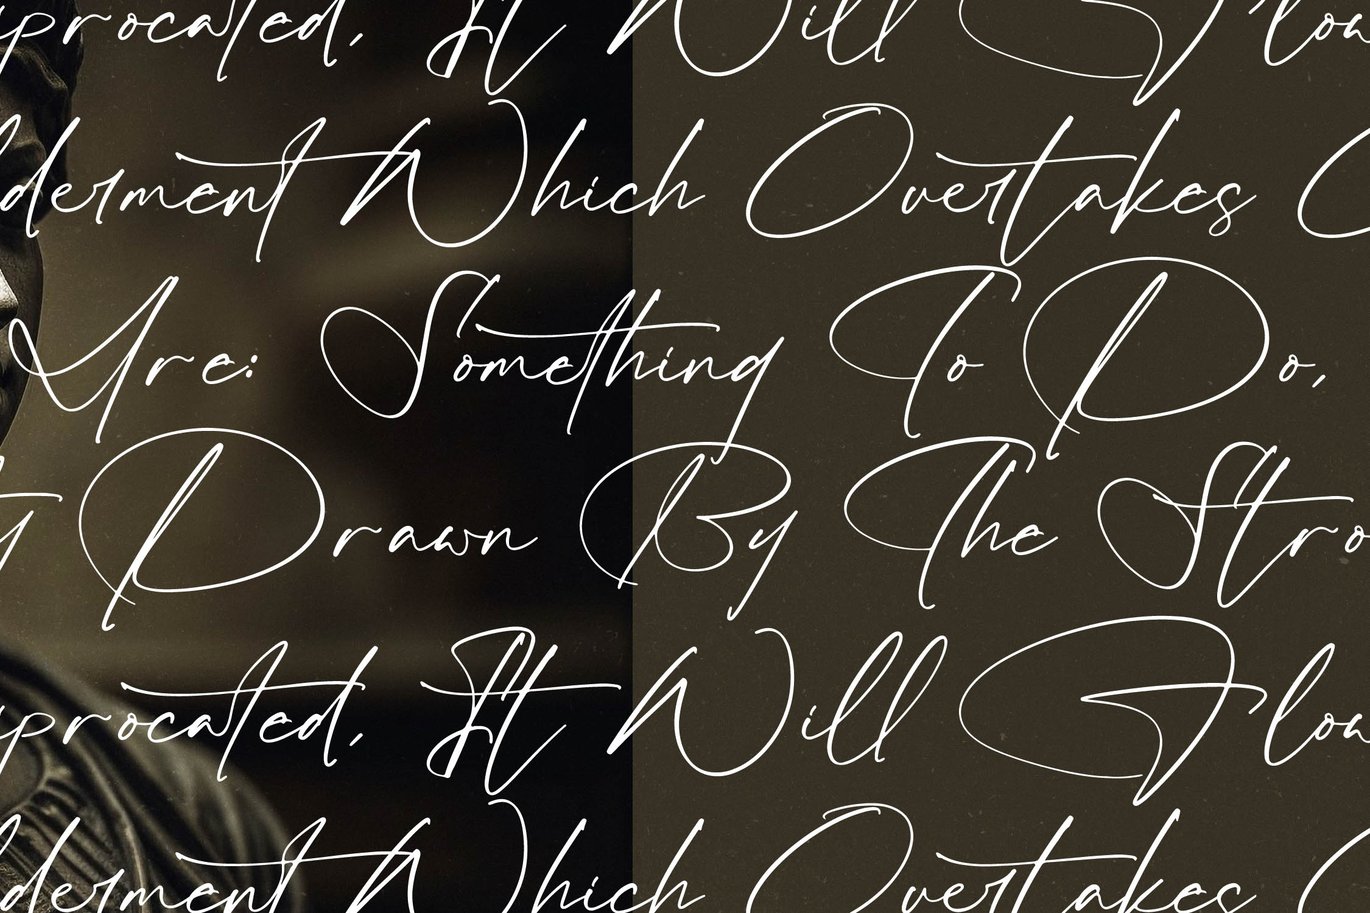 procated, It Will Flow
derment Which Overtakes
Are: Something To Do,
Drawn By The Stro
procated, It Will Flow
derment Which Overtakes